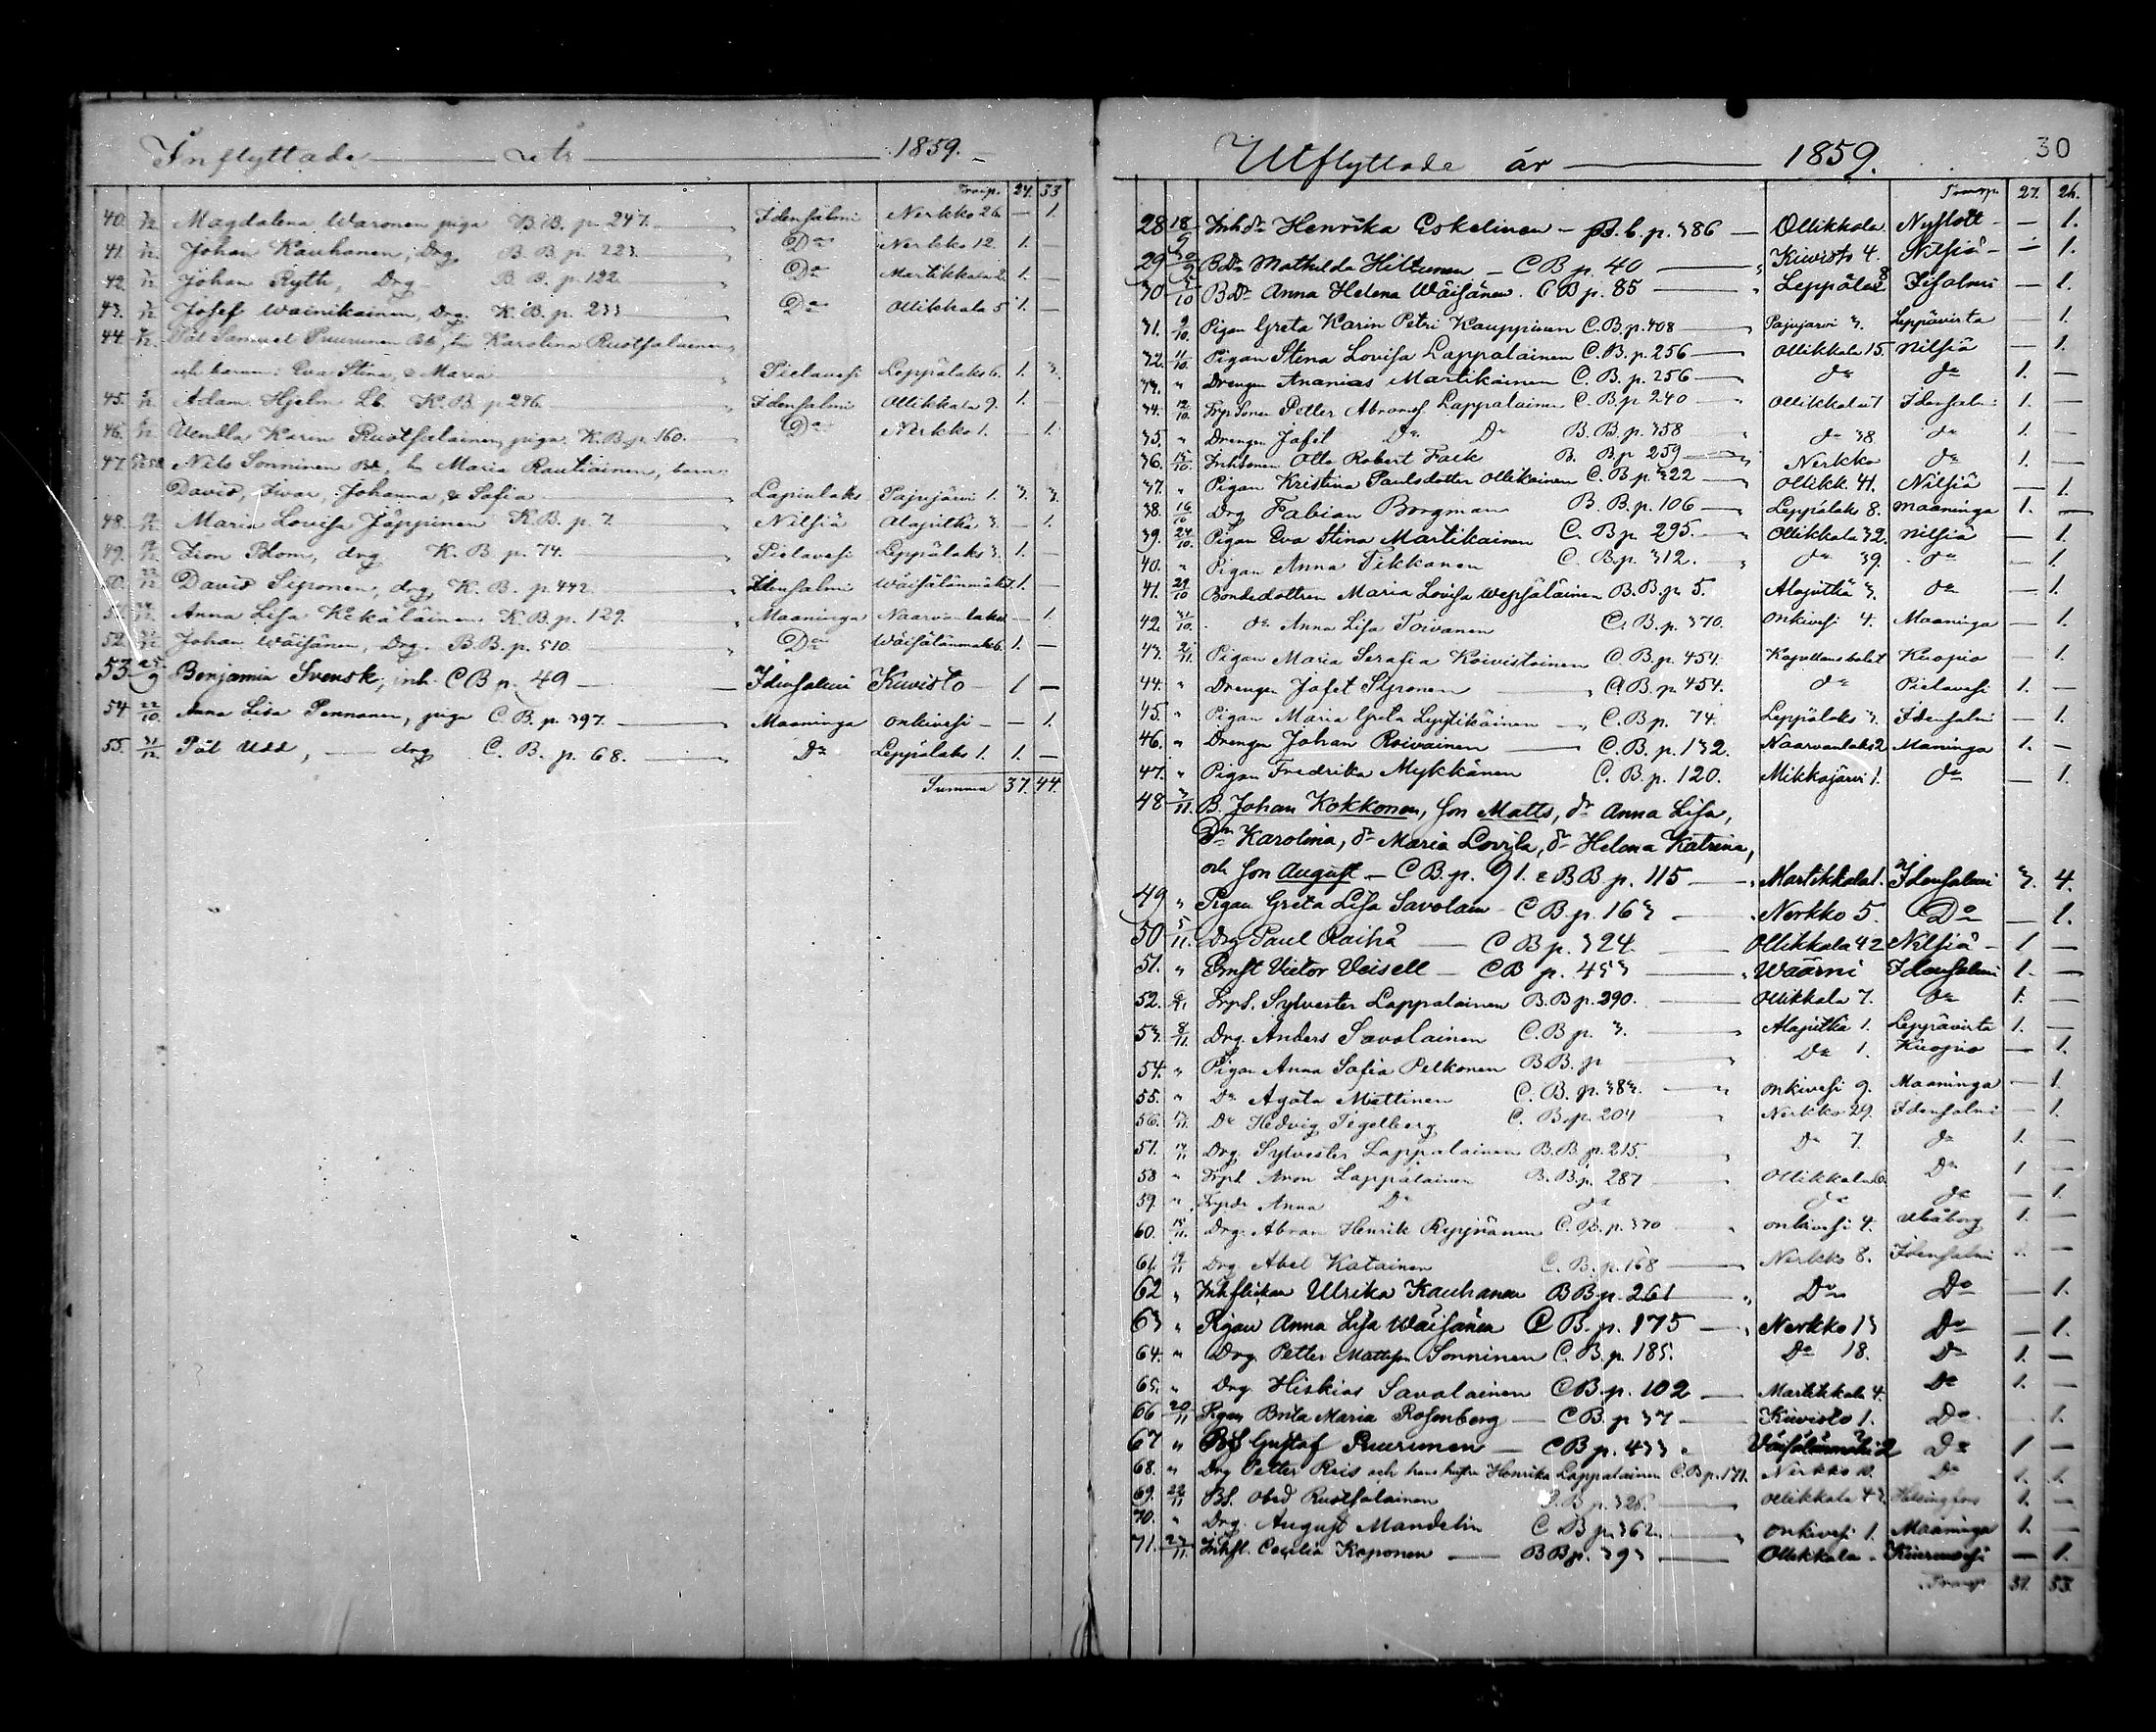 Inflyttade år 1859.
Transp. 24. 33
40. Magdalena Waronen piga B.B. p. 247. Idensalmi Nerkko 26 — 1.
41. Johan Kauhanen, Drg B.B. p. 223 Do Nerkko 12. 1. —
42. Johan Ryth, Drg B.B. p. 122 Do Martikkala 2. 1. —
43. Josef Wainikainen, Drg. K.B. p. 233 Do Ollikkala 5 1. —
44. Pål Samuel Puurunen Karolina Ruotsalainen
och barnen: Eva Stina, & Maria Pielavesi Leppälaks 6. 1. 3.
45. Adam Hjelm Lb. K.B. p 296. Idensalmi Ollikkala 9. 1. —
46. Vendla Karin Ruotsalainen, piga K.B. p. 160. Do Nerkko 1. — 1.
47. Nils Sonninen Maria Rautiainen, barn
David, Ivar, Johanna, & Sofia Lapinlaks Pajujärvi 1. 3. 3.
48. Maria Lovisa Jäppinen K.B. p. 7. Nilsiä Alapitkä 3. — 1.
49. Blom, drg K.B. p. 74. Pielavesi Leppälaks 3. 1. —
50. David Siponen, drg K.B. p. 442. Idensalmi Wäisälänmäki 1. —
51. Anna Lisa Kekäläinen K.B. p. 129. Maaninga Naarvanlaks — 1.
52. Johan Wäisänen, Drg. B.B. p. 510. Do Wäisälänmäki 6. 1. —
53 25/9 Benjamin Svensk, inh. CB p. 49 Idensalmi Kivisto 1 —
54 22/10. Anna Lisa Pennanen, piga C.B. p. 397. Maaninga Onkivesi — 1.
55. 31/12. Pål Udd, drg C.B. p. 68. Do Leppälaks 1. 1. —
Summa 37. 44.
Utflyttade år 1859. 30
Transp. 27. 26.
28 18/9 Inhdr Henrika Eskelinen — B.b. p. 386 Ollikkala Nyslott — 1.
29 30/9 BDr Mathilda Hiltunen — CB p. 40 Kiwisto 4. Nilsiä — 1.
30 BDr Anna Helena Wäisänen. CB p. 85 Leppälax 8 Idensalmi — 1.
31. 9/10. Pigan Greta Karin Petri Kauppinen C.B. p. 408 Pajujarvi 3. Leppävirta — 1.
32. 11/10. Pigan Stina Lovisa Lappalainen C.B. p. 256 Ollikkala 15. Nilsiä — 1.
33. " Drengen Ananias Martikainen C.B. p. 256 do do 1. —
34. 12/10. Petter Abramss. Lappalainen C.B. p. 240 Ollikkala 1 Idensalmi 1. —
35. " Drengen Jafet Do Do B.B. p. 358 do 38 do 1. —
36. 15/10. Inhsonen Otto Robert Falk B.B. p 259 Nerkko do 1. —
37. " Pigan Kristina Paulsdotter Ollikainen C.B. p. 322 Ollikk. 41. Nilsiä — 1.
38. 16/10 Drg Fabian Borgman B.B. p. 106 Leppälaks 8. Maaninga 1. —
39. 24/10. Pigan Eva Stina Martikainen C.B. p. 295. Ollikkala 32. Nilsiä — 1.
40. " Pigan Anna Tikkanen C.B. p. 312. do 39. do — 1.
41. 29/10 Bondedottren Maria Lovisa Wepsäläinen B.B. p. 5. Alapitkä 3. do — 1.
42. 31/10. do Anna Lisa Toivanen C.B. p. 370. Onkivesi 4. Maaninga — 1.
43. 2/11. Pigan Maria Serafia Koivistoinen C.B. p. 454. Kapellansbolet Kuopio — 1.
44. " Drengen Jafet Siponen C.B. p. 454. do Pielavesi 1. —
45. " Pigan Maria Greta C.B. p. 74. Leppälaks 3. Idensalmi — 1.
46. " Drengen Johan Roivainen C.B. p. 132. Naarvanlaks 2 Maninga 1. —
47. " Pigan Fredrika Mykkänen C.B. p. 120. Mikkajärvi 1. do — 1.
48 3/11. B. Johan Kokkonen, son Matts, dr Anna Lisa,
Dr Karolina, dr Maria Lovisa, dr Helena Katrina,
och son August — CB. p. 91. & BB p. 115 Martikkala 1. Idensalmi 3. 4.
49 " Pigan Greta Lisa Savolain CB p. 163 Nerkko 5. Do — 1.
50 5/11. Drg Paul Raihä CB p. 324. Ollikkala 42 Nilsiä 1 —
51. " Ernst Victor Veisell — CB p. 453 Waärni Idensalmi 1. —
52. Sylvester Lappalainen B.B p. 290. Ollikkala 7. do 1. —
53. 8/11. Drg. Anders Savolainen C.B p. 3. Alapitkä 1. Leppävirta 1. —
54. " Pigan Anna Sofia Pelkonen BB. p Do 1. Kuopio — 1.
55. " Do Agata Miettinen C.B. p. 383. Onkivesi 9. Maaninga — 1.
56. Do Hedvig Tegelberg C.B. p. 204 Nerkko 29. Idensalmi — 1.
57. Drg. Sylvester Lappalainen B.B. p. 215. Do 7. do 1. —
58 " Aron Lappalainen B.B p. 287 Ollikkala 6. Do 1 —
59. " Anna Do do do do — 1.
60. 15/11. Drg. Abram Henrik C.B. p. 370 Onkivesi 4. Uleåborg 1. —
61. 19/11 Drg Abel Katainen C.B. p. 168 Nerkko 8. Idensalmi 1. —
62 " Inhflickan Ulrika Kauhanen BB p. 261 Do Do — 1.
63 " Pigan Anna Lisa Wäisänen CB. p. 175 Nerkko 13 Do — 1.
64. " Drg. Petter Mattsson Sonninen C.B. p. 185. Do 18. Do 1. —
65. " Drg. Hiskias Savolainen CB. p. 102 Martikkala 4. Do 1. —
66 20/11 Pigan Brita Maria Rosenberg — CB. p 37 Kiwisto 1. Do — 1.
67 " BS Gustaf Puurunen — CB p. 433 Wäisälänmäki 2 Do 1 —
68. " Drg Petter Reis och hans hustru Henrika Lappalainen C.B p. 171. Nerkko Do 1. 1.
69. 22/11 BS. Obed Ruotsalainen C.B p. 326. Ollikkala 43. Helsingfors 1. —
70. " Drg. August Mandelin C.B p. 362. Onkivesi 1. Maaninga 1. —
71. 23/11. Inhfl. Cecilia Koponen BB p. 393 Ollikkala Kiuruvesi — 1.
Transp 51. 53.